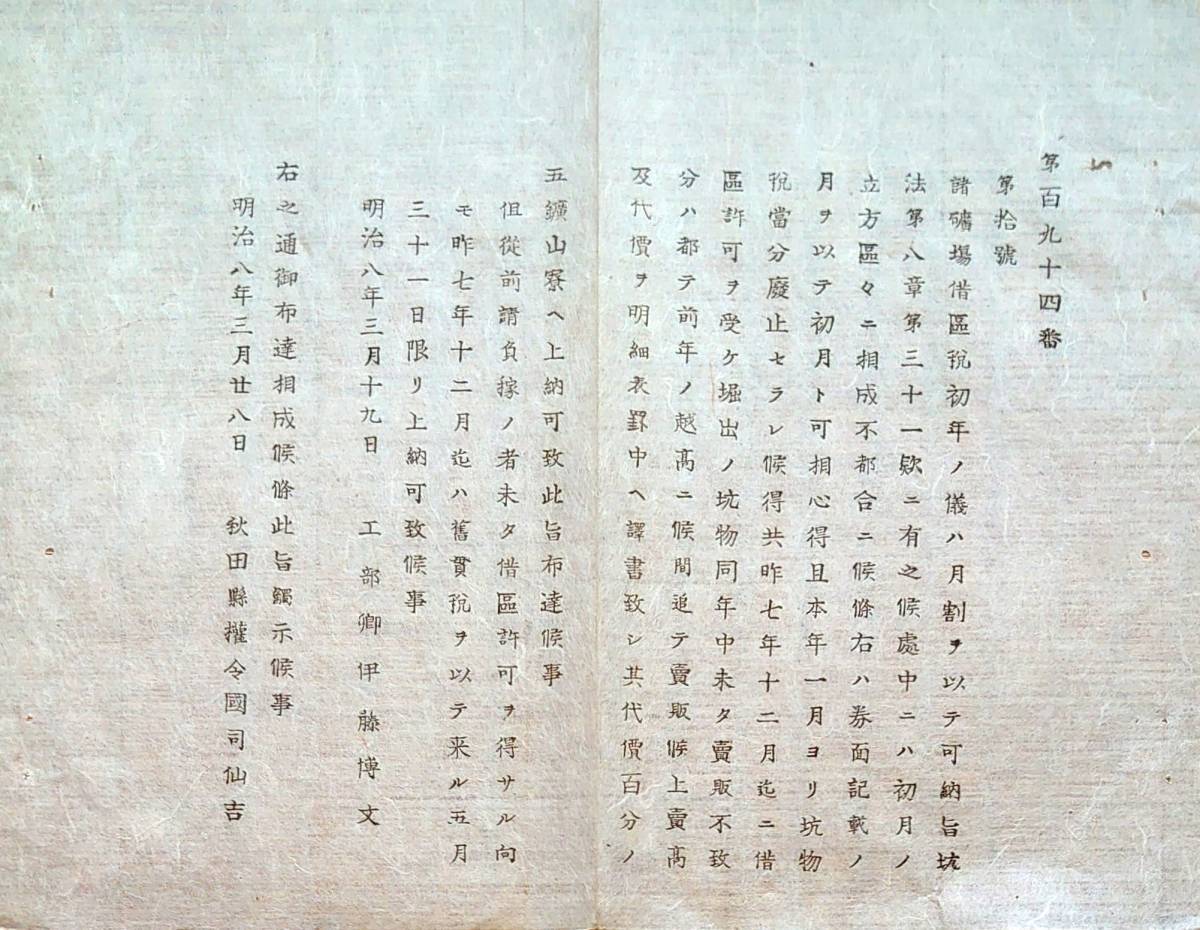 第百九十四番
第拾號
諸礦塲借區稅初年ノ儀ハ月割ヲ以テ可納旨坑
法第八章第三十一欵ニ有之候處中ニハ初月ノ
立方區々ニ相成不都合ニ候條右ハ券面記載ノ
月ヲ以テ初月ト可相心得且本年一月ヨリ坑物
稅當分廢止セラレ候得共昨七年十二月迄ニ借
區許可ヲ受ケ堀出ノ坑物同年中未タ賣販不致
分ハ都テ前年ノ越髙ニ候間追テ賣販候上賣髙
及代價ヲ明細表罫中ヘ譯書致シ其代價百分ノ
五鑛山寮ヘ上納可致此旨布達候事
伹從前請負稼ノ者未タ借區許可ヲ得サル向
モ昨七年十二月迄ハ舊貫稅ヲ以テ来ル五月
三十一日限リ上納可致候事
明治八年三月十九日　工部卿伊藤博文
右之通御布達相成候條此旨觸示候事
明治八年三月廿八日　秋田縣權令國司仙吉